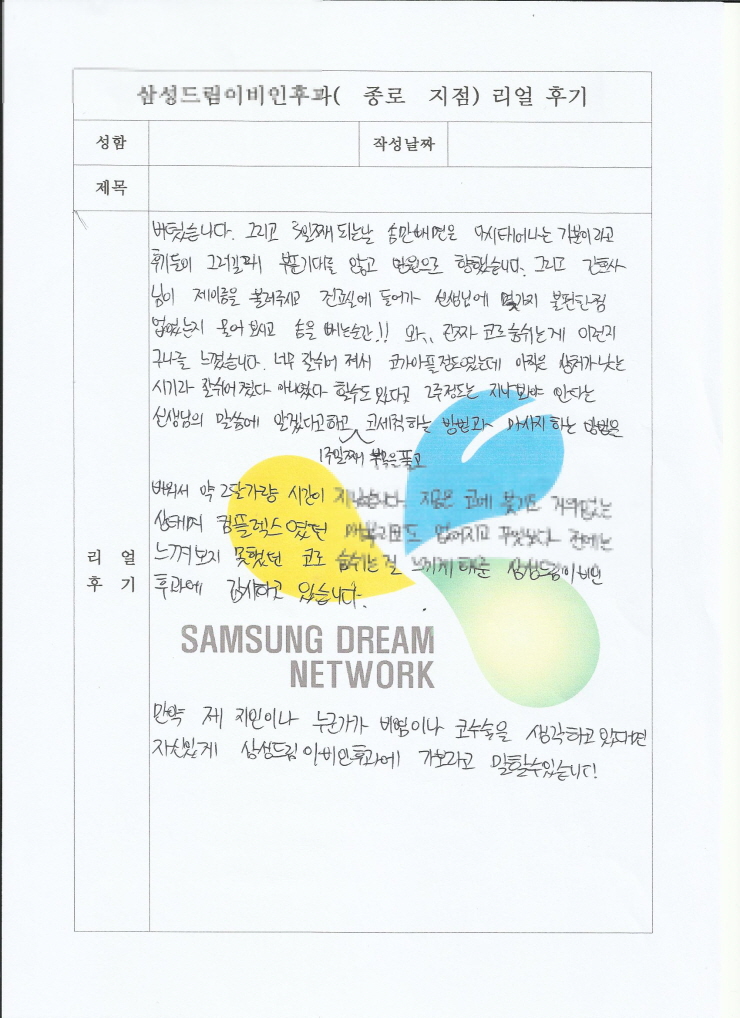 삼성드림이비인후과( 종로 지점) 리얼 후기
성함
작성날짜
제목
버텼습니다. 그리고 3일째 되는날 솜만빼면은 다시태어나는 기분이라고
후기들이 그러길래 부푼기대를 안고 병원으로 향했습니다. 그리고 간호사
님이 제이름을 불러주시고 진료실에 들어가 선생님에 몇가지 불편한점
없었는지 물어 보시고 솜을 빼는순간!! 와.. 진짜 코로숨쉬는게 이런거
구나를 느꼈습니다. 너무 잘쉬어 져서 코가아플정도였는데 아직은 상처가낫는
시기라 잘쉬어졌다 아니였다 할수도 있다고 2주정도는 지나 봐야 안다는
선생님의 말씀에 알겠다고하고 코세척하는 방법과 마사지 하는 방법을
1주일째 부목을풀고
배워서 약 2달가량 시간이 지났습니다. 지금은 코에 붓기도 거의없는
상태며 컴플렉스였던 매부리코도 없어지고 무엇보다 전에는
느껴보지 못했던 코로 숨쉬는걸 느끼게 해준 삼성드림이비인
후과에 감사하고 있습니다.
리얼
후기
SAMSUNG DREAM
NETWORK
만약 제 지인이나 누군가가 비염이나 코수술을 생각하고있다면
자신있게 삼성드림이비인후과에 가보라고 말할수있습니다!